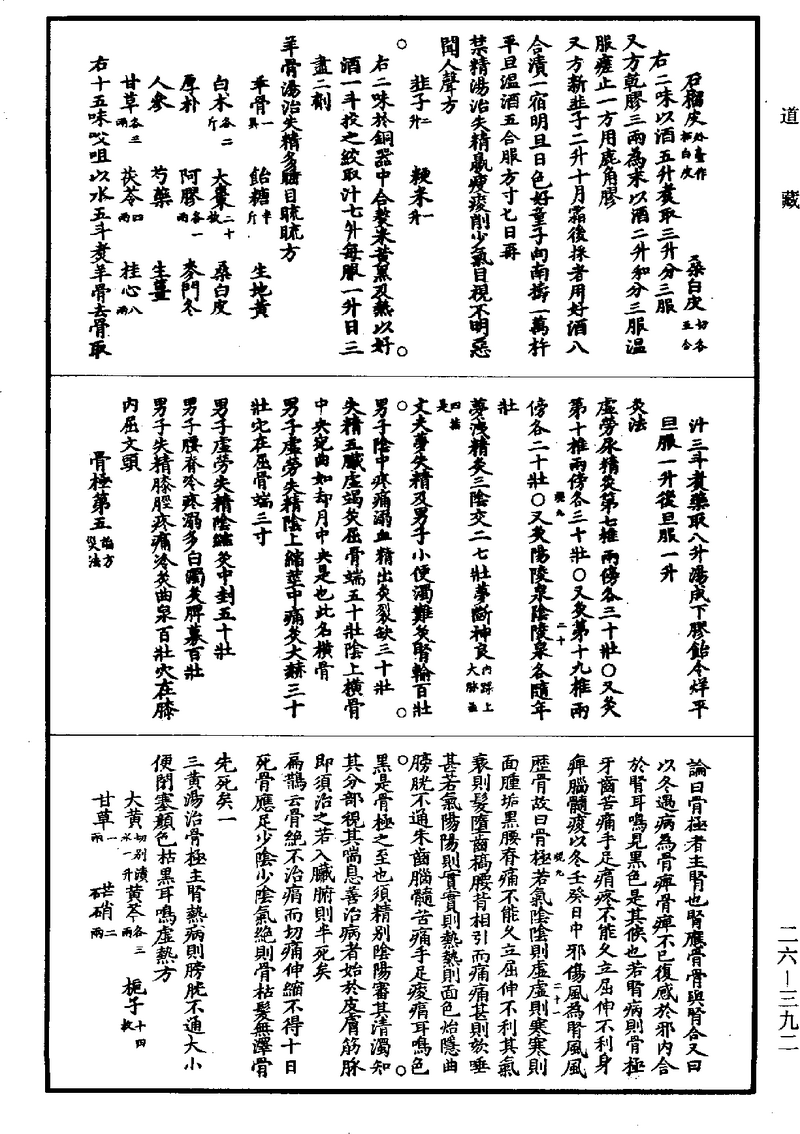 道藏
石榴皮外臺作柘白皮 桑白皮切各五合
右二味以酒五升煮取三升分三服
又方乾膠三兩為末以酒二升和分三服温
服瘥止一方用鹿角膠
又方新韭子二升十月霜後採者用好酒八
合漬一宿明旦日色好童子向南擣一萬杵
平旦温酒五合服方寸匕日再
禁精湯治失精羸瘦痠削少氣目視不明惡
聞人聲方
韭子二升 粳米一升
右二味於銅器中合熬米黄黑及熱以好
酒一斗投之絞取汁七升每服一升日三
盡二劑
羊骨湯治失精多睡目䀮䀮方
羊骨一具 飴糖半斤 生地黄
白术各三斤 大棗二十枚 桑白皮
厚朴 阿膠各一兩 麥門冬
人參 芍藥 生薑
甘草各三兩 茯苓四兩 桂心八兩
右十五味㕮咀以水五斗煮羊骨去骨取
汁三斗煮藥取八升湯成下膠飴令烊平
旦服一升後旦服一升
灸法
虛勞尿精灸第七椎兩傍各三十壯○又灸
第十椎兩傍各三十壯○又灸第十九椎兩
傍各二十壯○又灸陽陵泉陰陵泉各隨年
壯
夢洩精灸三陰交二七壯夢斷神良内踝上大脉並
四指是
丈夫夢失精及男子小便濁難灸腎輸百壯
男子陰中疼痛溺血精出灸列缺三十壯
失精五臟虛竭灸屈骨端五十壯陰上横骨
中央宛曲如却月中央是也此名横骨
男子虛勞失精陰上縮莖中痛灸大赫三十
壯穴在屈骨端三寸
男子虛勞失精陰縮灸中封五十壯
男子腰脊冷疼溺多白濁灸脾募百壯
男子失精膝脛疼痛冷灸曲泉百壯穴在膝
内屈文頭
骨極第五論方灸法
論曰骨極者主腎也腎應骨骨與腎合又曰
以冬遇病為骨痺骨痺不已復感於邪内舍
於腎耳鳴見黑色是其候也若腎病則骨極
牙齒苦痛手足痟疼不能久立屈伸不利身
痺腦髓痠以冬壬癸日中邪傷風為腎風風
歷骨故曰骨極若氣陰陰則虛虛則寒寒則
面腫垢黑腰脊痛不能久立屈伸不利其氣
衰則髮墮齒槁腰背相引而痛痛甚則欬唾
甚若氣陽陽則實實則熱熱則面色炲隱曲
膀胱不通朱齒腦髓苦痛手足痠痟耳鳴色
黑是骨極之至也須精别陰陽審其清濁知
其分部視其喘息善治病者始於皮膚筋脉
即須治之若入臟腑則半死矣
扁鵲云骨絶不治痛而切痛伸縮不得十日
死骨應足少陰少陰氣絶則骨枯髮無澤骨
先死矣一
三黄湯治骨極主腎熱病則膀胱不通大小
便閉塞顔色枯黑耳鳴虛熱方
大黄切别漬水一升 黄芩各三兩 梔子十四枚
甘草一兩 芒硝二兩
二六－三九二